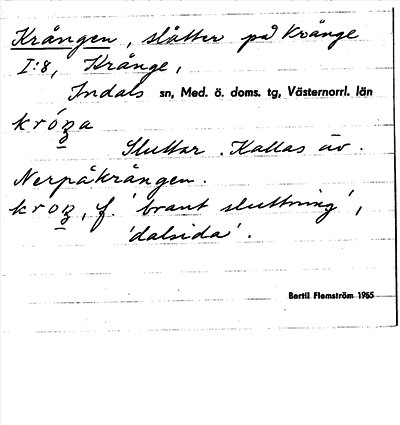 Krången, slåtter på Krånge
I:8, Krånge,
Indals sn, Med. ö. doms. tg, Västernorrl. län
króŋa
Sluttar. Kallas äv.
Nerpåkrången.
króŋ, f. 'brant sluttning',
'dalsida'.
Bertil Flemström 1955